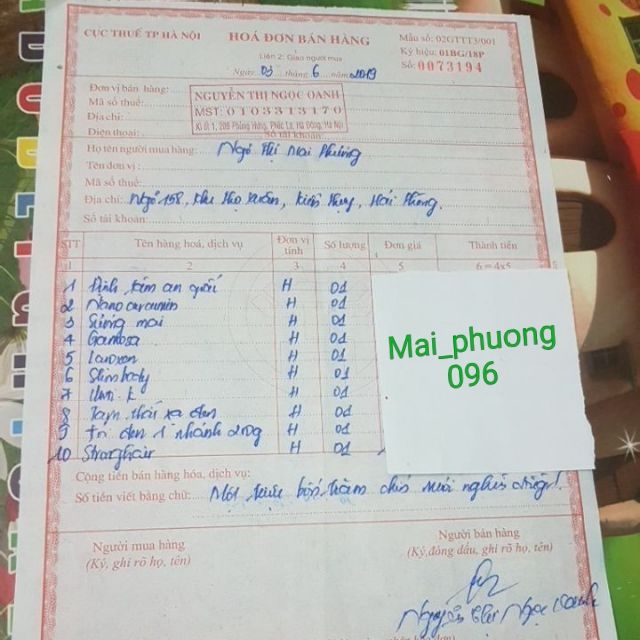 CỤC THUẾ TP HÀ NỘI
HOÁ ĐƠN BÁN HÀNG
Liên 2: Giao người mua
Ngày 03 tháng 6 năm 2019
Mẫu số: 02GTTT3/001
Ký hiệu: 01BG/18P
Số: 0073194
Đơn vị bán hàng:
Mã số thuế:
Địa chỉ:
Điện thoại: Số tài khoản
NGUYỄN THỊ NGỌC OANH
MST: 0103313170
Họ tên người mua hàng: Ngô Thị Mai Phương
Tên đơn vị:
Mã số thuế:
Địa chỉ: Ngõ 158, khu Thọ Xuân, Kiến Thụy, Hải Phòng.
Số tài khoản:
STT Tên hàng hoá, dịch vụ Đơn vị tính Số lượng Đơn giá Thành tiền
1 2 3 4 5 6 = 4x5
1 Định tâm an H 01
2 Nano curcumin H 01
3 H 01
4 H 01
5 H 01
6 Slimbody H 01
7 H 01
8 Tam thất xạ đen H 01
9 Trĩ 1 nhánh 200g H 01
10 H 01
Mai_phuong
096
Cộng tiền bán hàng hóa, dịch vụ:
Số tiền viết bằng chữ: Một triệu bốn trăm chín mươi nghìn đồng!
Người mua hàng
(Ký, ghi rõ họ, tên)
Người bán hàng
(Ký, đóng dấu, ghi rõ họ, tên)
Nguyễn Thị Ngọc Oanh